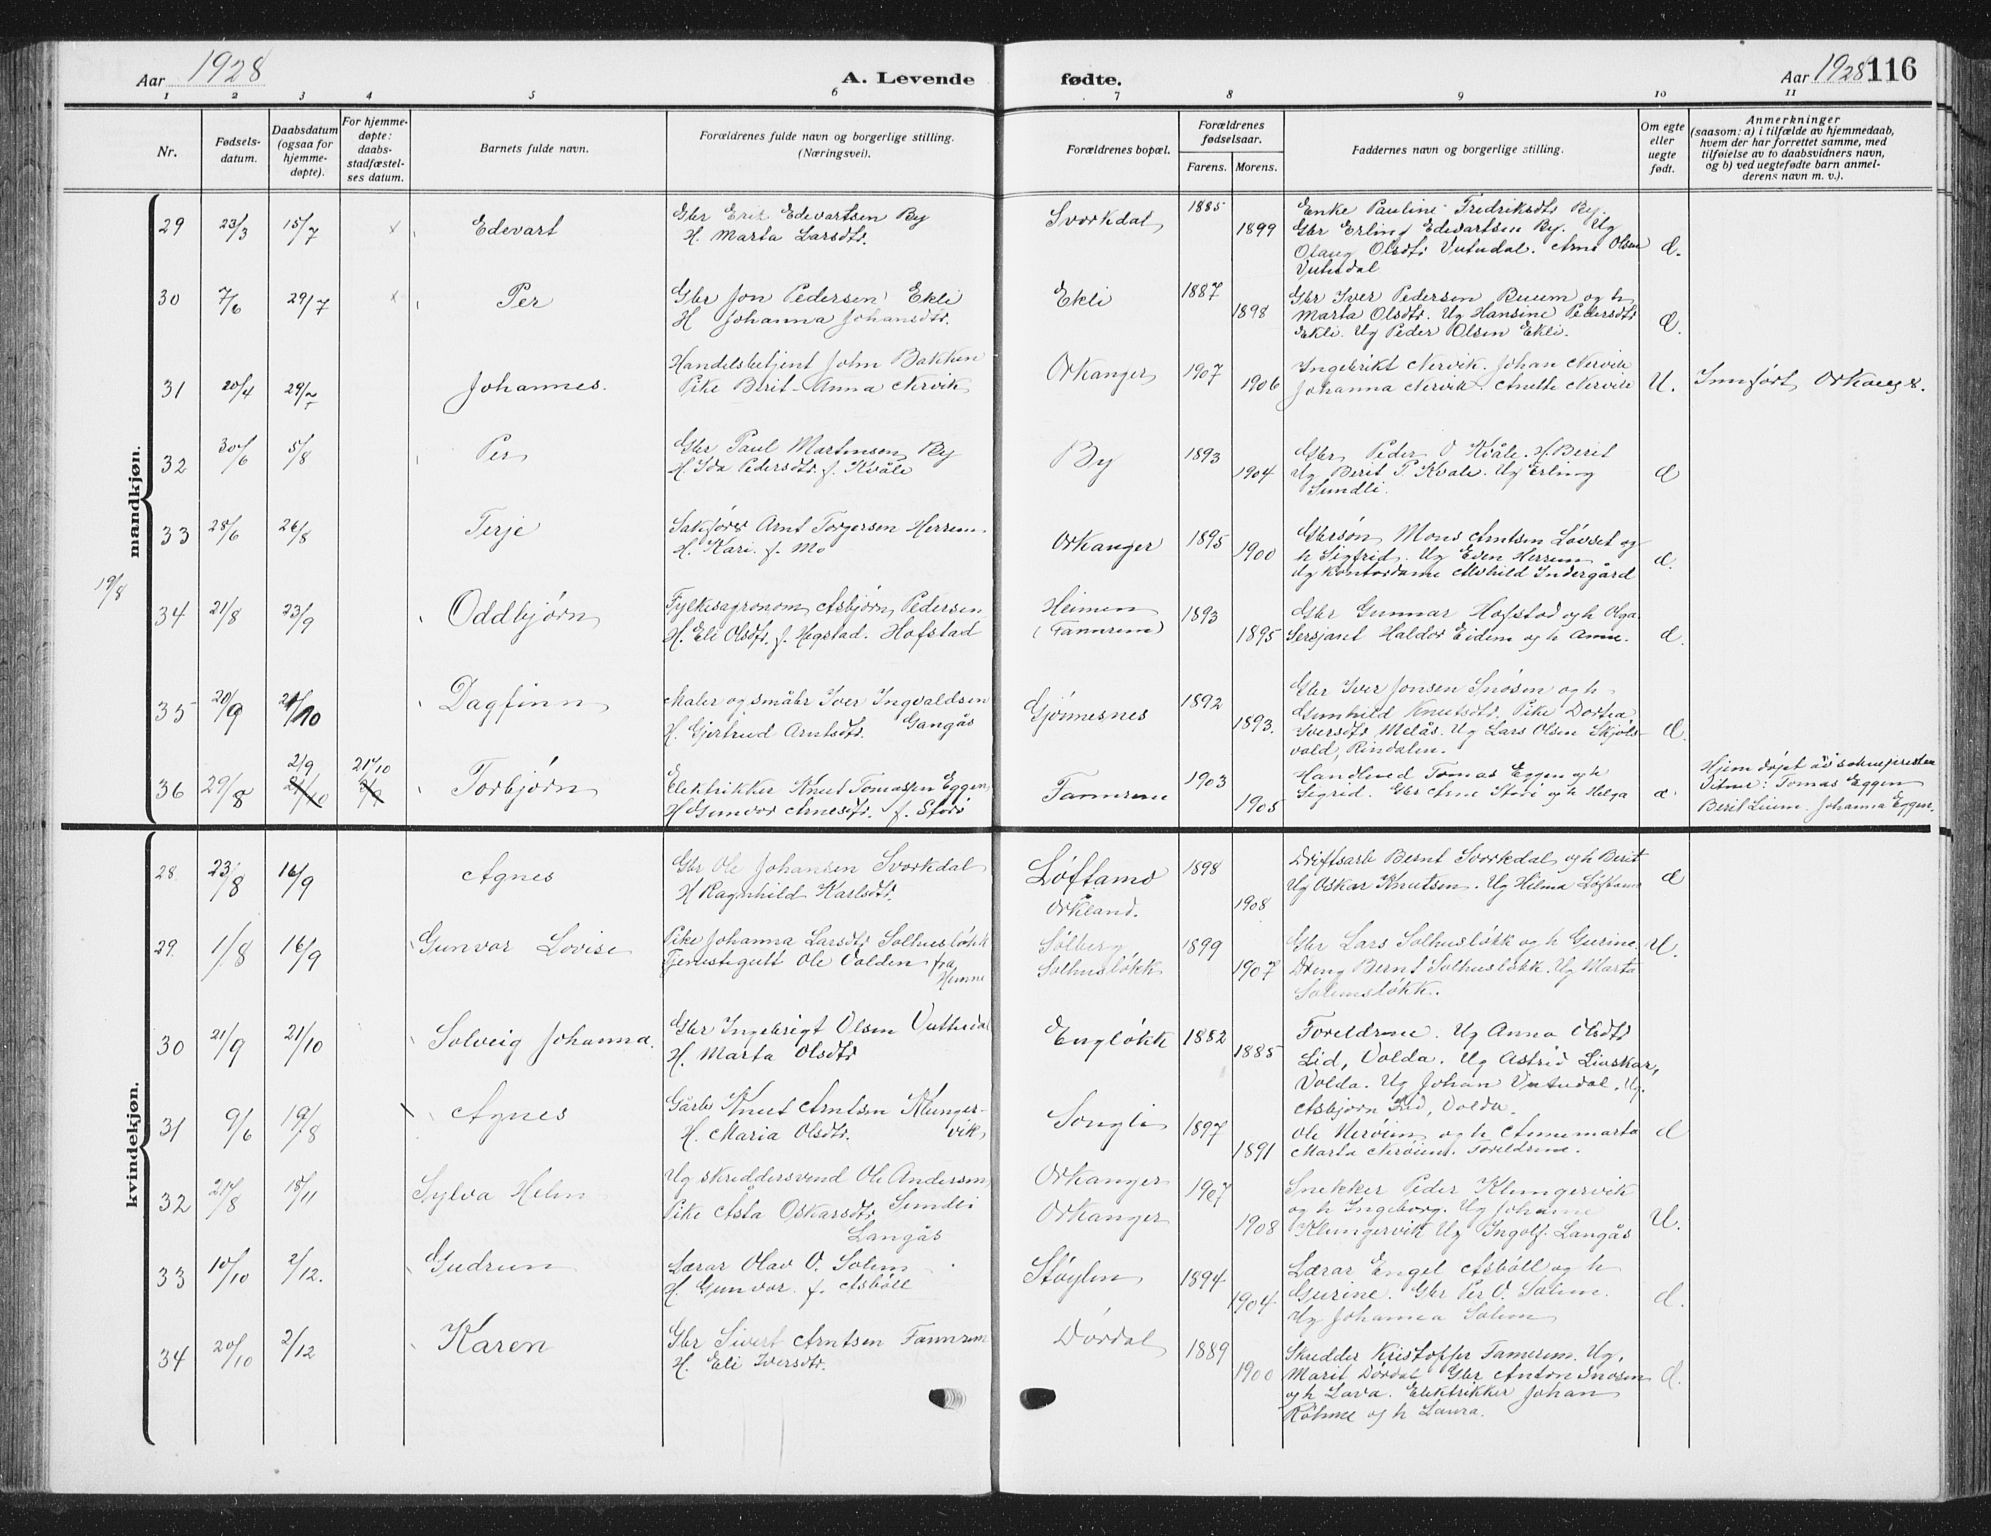 Aar 1928
A. Levende fødte.
Aar 1928 116
1 2 3 4 5 6 7 8 9 10 11
Nr.
Fødsels-
datum.
Daabsdatum
(ogsaa for
hjemme-
døpte).
For hjemme-
døpte:
daabs-
stadfæstel-
ses datum.
Barnets fulde navn.
Forældrenes fulde navn og borgerlige stilling.
(Næringsvei).
Forældrenes bopæl.
Forældrenes
fødselsaar.
Farens. Morens.
Faddernes navn og borgerlige stilling.
Om egte
eller
uegte
født.
Anmerkninger
(saasom: a) i tilfælde av hjemmedaab,
hvem der har forrettet samme, med
tilføielse av to daabsvidners navn,
og b) ved uegtefødte barn anmel-
derens navn m. v.).
mandkjøn.
19/8
29 23/3 15/7 x Edevart
Gbr Eris Edevartsen By
H. Marta Larsdtr.
Svorkdal 1885 1899
Enke Pauline Fredriksdtr By.
Gbr Erling Edevartsen By. Ug
Olaug Olsdtr Vutudal. Arne Olsen
Vutudal
æ.
30 7/6 29/7 x Per
Gbr Jon Pedersen Ekli
H Johanna Johansdtr.
Ekli 1887 1898
Gbr Iver Pedersen Buum og h
Marta Olsdtr. Ug Hansine Pedersdtr
Ekli. Ug Peder Olsen Ekli.
Æ.
31 20/4 29/7 Johannes.
Handelsbetjent John Bakken
Pike Berit-Anna Nervik
Orkanger 1907 1906
Ingebrikt Nervik. Johan Nervik
Johanna Nervik. Anette Nervik
U. Innført Orkanger.
32 30/6 5/8 Per
Gbr Paul Martinsen By
H. Ida Pedersdtr f. Kvåle
By 1893 1904
Gbr Peder O Kvåle. H Berit
Ug Berit P. Kvale. Ug Erling
Sundli.
æ
33 28/6 26/8 Terje
Sakfører Arnt Torgersen Herrem
H. Kari f. Mo
Orkanger 1895 1900
Gbrsøn Mons Arntsen Løvset og
h Sigfrid. Ug Even Herrem
Ug Kontordame Alvhild Indergård
æ.
34 21/8 23/9 Oddbjørn
Fylkesagronom Asbjørn Pedersen
H. Eli Olsdtr. f. Hegstad. Hofstad
Heimen
(Fannrem) 1893 1895
Gbr Gunnar Hofstad og h Olga
Sersjant Haldor Eidem og h Anne.
æ.
35 20/9 21/10 Dagfinn
Maler og småbr Iver Ingvaldsen
H. Gjertrud Arntsdtr. Gangås
Gjønnesnes 1892 1893.
Gbr Iver Jonsen Snøsen og h
Gunhild Knutsdtr. Pike Dortea
Iversdtr Melås. Ug Lars Olsen Skjøls-
vold, Rindalen.
æ.
36 29/8 2/9 21/10 21/10 2/9 Torbjørn
Elektrikker Knut Tomassen Eggen
H Gunvor Arnesdtr. f. Støri
Fannrem 1903 1905
Handlend Tomas Eggen og h
Sigrid. Gbr Arne Støri og h Helga
æ
Hjemdøpt av soknepresten
Vitne: Tomas Eggen
Berit Lium. Johanna Eggen.
kvindekjøn.
28 23/8 16/9 Agnes
Gbr Ole Johansen Svorkdal
H Ragnhild Karlsdtr.
Løftamo
Orkland. 1898 1908
Driftsarb Bernt Svorkdal og h Berit
Ug Oskar Knutsen. Ug Hilma Løftamo
æ
29. 1/8 16/9 Gunvor Lovise
Pike Johanna Larsdtr Solhusløkk
Tjenestegutt Ole Volden fra
Hemne
Sølberg
Solhusløkk 1899 1907
Gbr Lars Solhusløkk og h Gurine.
Dreng Bernt Solhusløkk. Ug Marta
Solemsløkk.
U.
30 21/9 21/10 Solveig Johanna.
Gbr Ingebrigt Olsen Vuttudal
H. Marta Olsdtr
Engløkk 1882 1885
Foreldrene. Ug Anna Olsdtr
Lid, Volda. Ug Astrid Livskar,
Volda. Ug Johan Vutudal. Ug.
Asbjørn Lid, Volda.
31 9/6 19/8 Agnes
Gårbr Knut Arntsen Klunger-
H. Maria Olsdtr. vik
Songli 1897 1891
Ole Merøien og h Annemarta
Marta Merøien. Foreldrene.
æ
32 21/8 18/11 Sylva Helen
Ug skreddersvend Ole Andersen
Pike Asta Oskarsdtr Sundli
Langås
Orkanger
Orkanger 1907 1908
Snekker Peder Klungervik
og h Ingeborg. Ug Johanne
Klungervik Ug Ingolf Langås
U.
33 10/10 2/12. Gudrun
Lærar Olav O. Solem
H. Gunvor f. Asbøll
Støylen 1894 1904
Lærar Engel Asbøll og h
Gurine. Gbr Per O. Solem.
Ug Johanna Solem
æ.
34 20/10 2/12 Karen
Gbr Sivert Arntsen Fannrem
H. Eli Iversdtr.
Dørdal 1889 1900
Skredder Kristoffer Fannrem. Ug.
Marit Dørdal Gbr Anton Snosen
og h Lava. Elektrikker Johan
Røhme og h Laura.
æ.